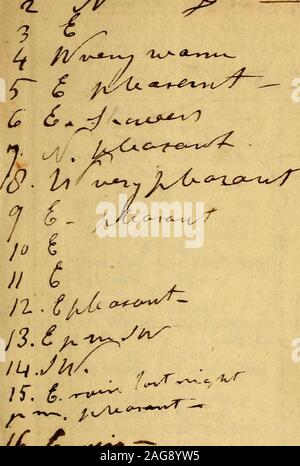 2 N
3 E
4 W very warm
5 E pleasant –
6 E. Showers
7. N. pleasant.
8. N very pleasant
9 E – pleasant
10 E
11 E
12. E pleasant –
13. E p m SW
14. SW.
15. E. rain last night
p m. pleasant –
16 E
alamy
Image ID: 2AG8YW5
www.alamy.com